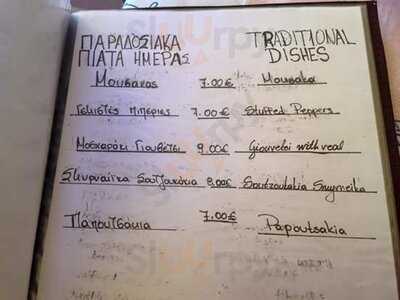 ΠΑΡΑΔΟΣΙΑΚΑ TRADITIONAL
ΠΙΑΤΑ ΗΜΕΡΑΣ DISHES
Μουσακας 7.00€ Mousaka
Γεμιστές πιπεριες 7.00€ Stuffed Peppers
Μοσχαράκι Γιουβέτσι 9.00€ Giouvetsi with veal
Σμυρναίικα Σουτζουκάκια 8,00€ Soutzoutakia Smyrneika
Παπουτσάκια 7.00€ Papoutsakia